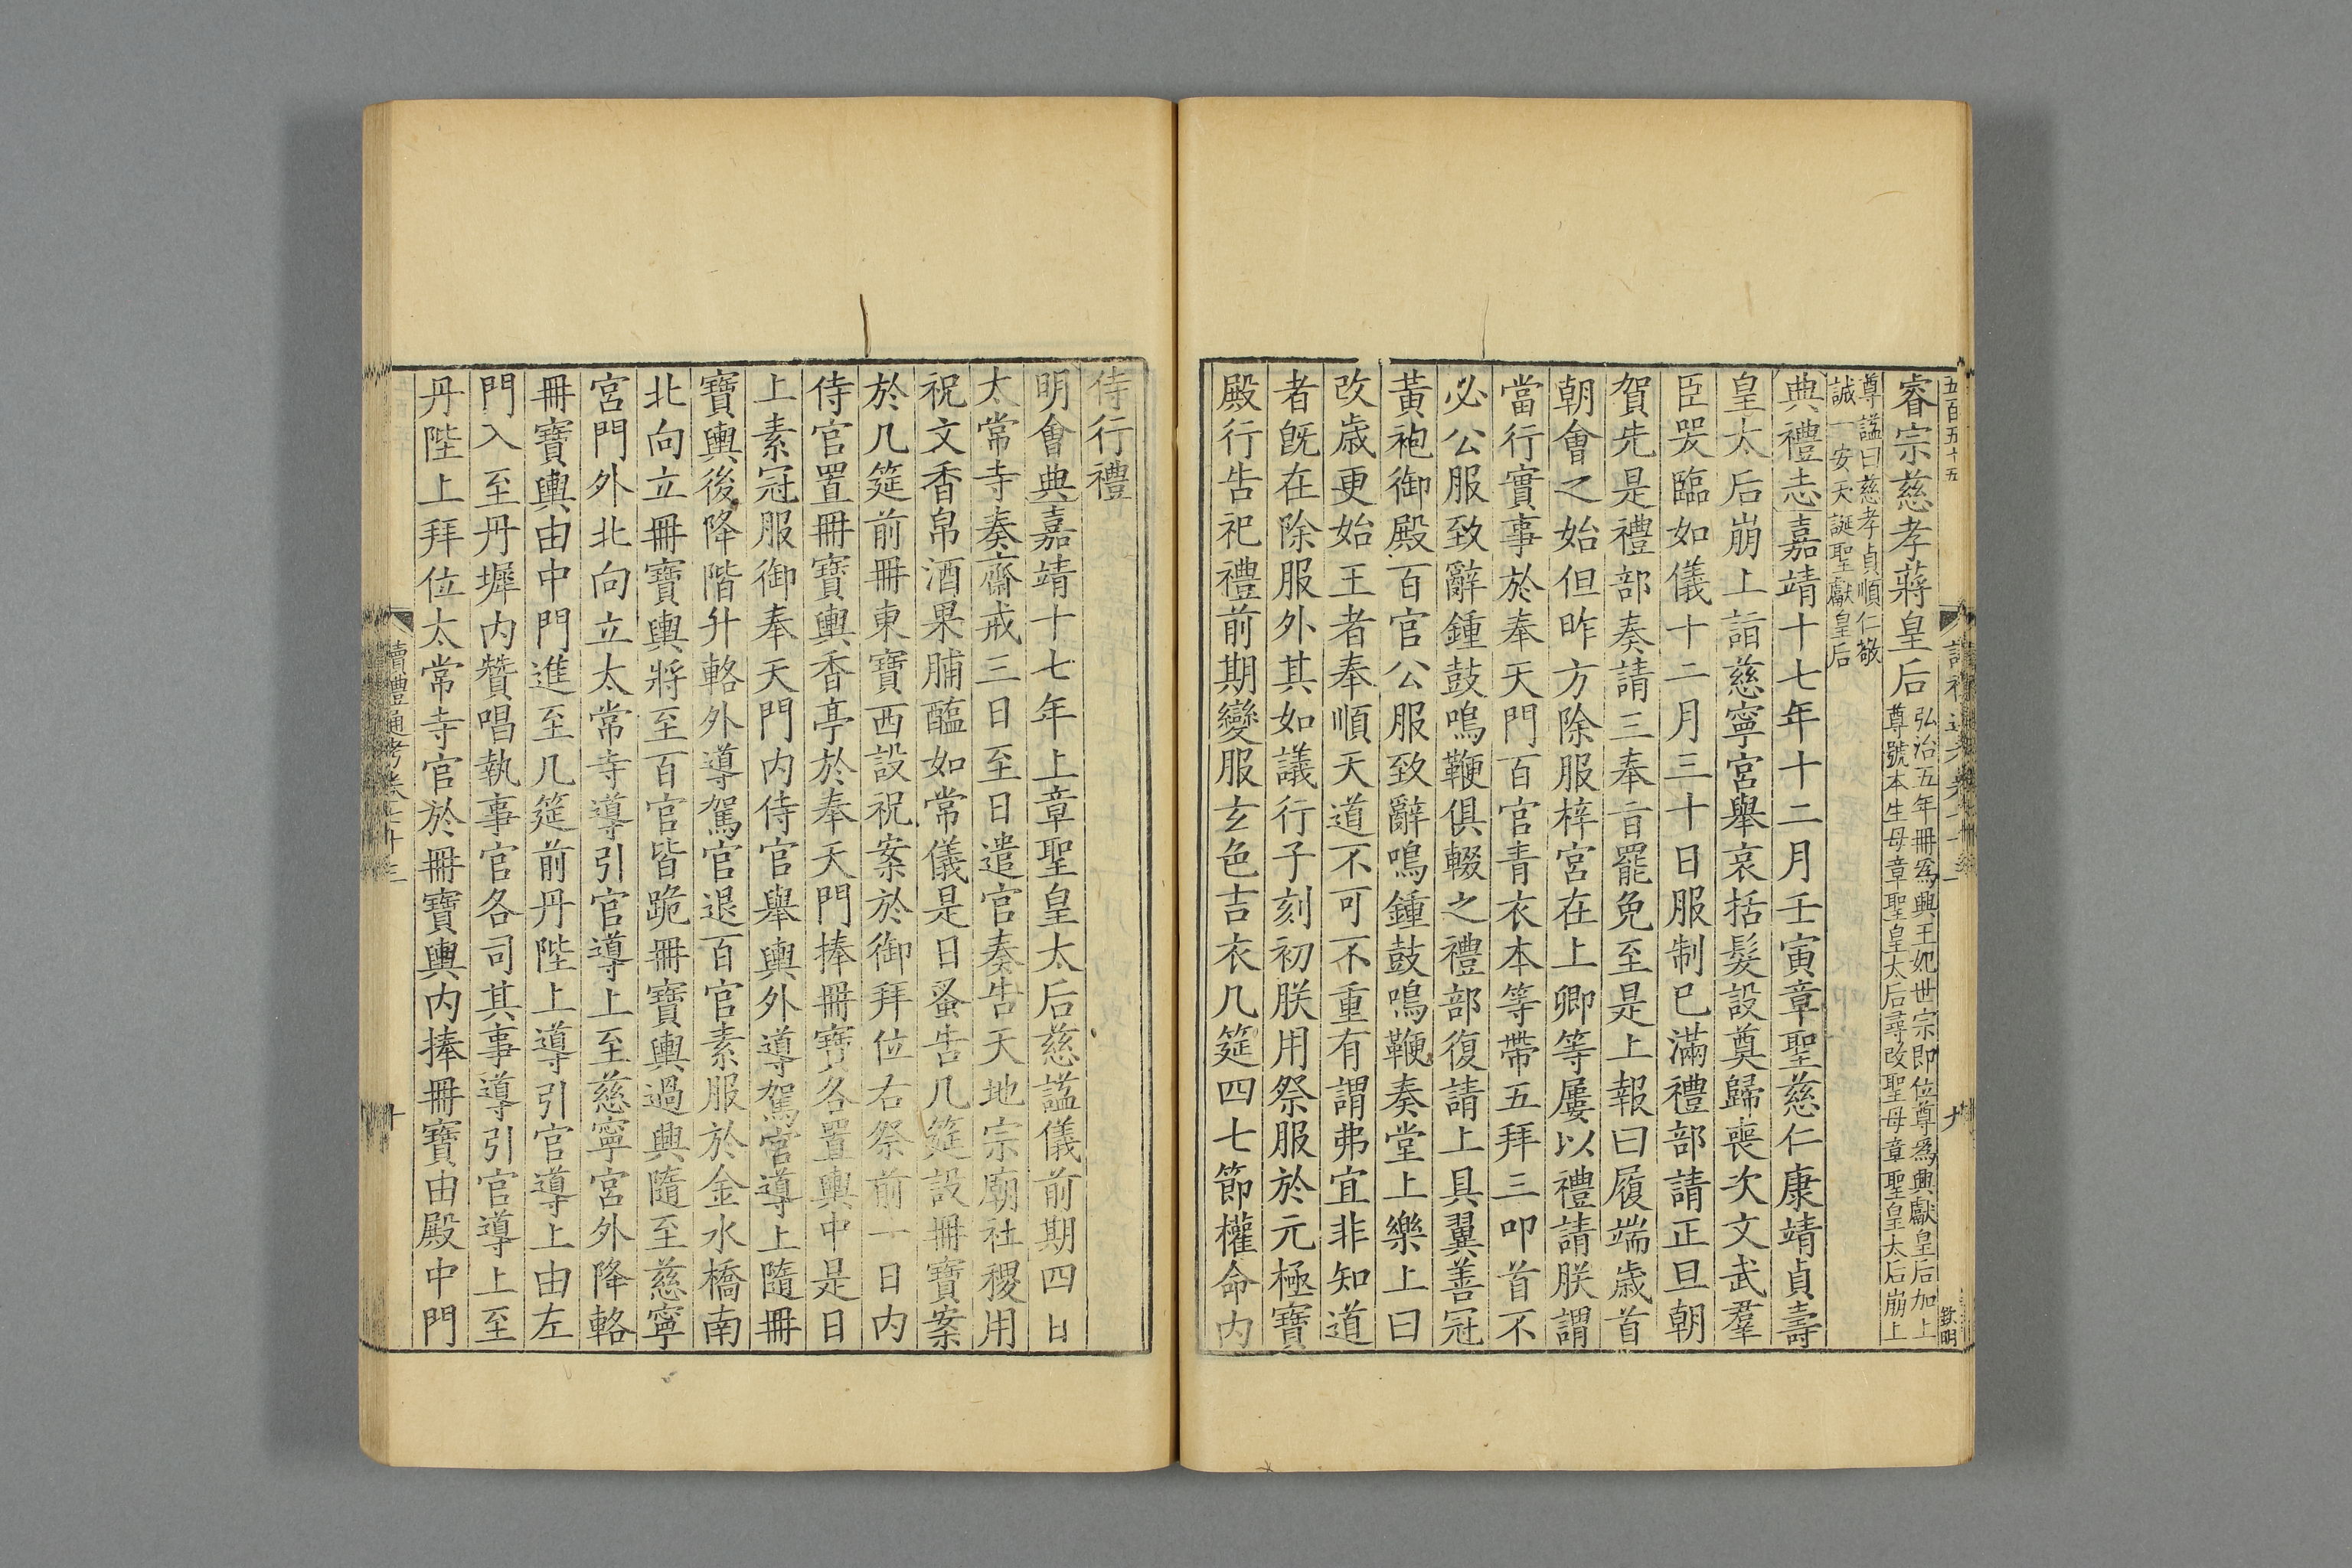 五百五十五
九
睿宗慈孝蔣皇后
弘治五年冊爲興王妃世宗即位尊爲興獻皇后加上
尊號本生母章聖皇太后尋改聖母章聖皇太后崩上
尊諡曰慈孝貞順仁敬
誠一安天誕聖獻皇后
典禮志嘉靖十七年十二月壬寅章聖慈仁康靖貞壽
皇太后崩上詣慈寧宮舉哀括髮設奠歸喪次文武羣
臣哭臨如儀十二月三十日服制巳滿禮部請正旦朝
賀先是禮部奏請三奉㫖罷免至是上報曰履端歲首
朝會之始但昨方除服梓宮在上卿等屢以禮請朕謂
當行實事於奉天門百官青衣本等帶五拜三叩首不
必公服致辭鍾鼓鳴鞭俱輟之禮部復請上具翼善冠
黃袍御殿百官公服致辭鳴鍾鼓鳴鞭奏堂上樂上曰
改歲更始王者奉順天道不可不重有謂弗宜非知道
者旣在除服外其如議行子刻初朕用祭服於元極寶
殿行告祀禮前期變服玄色吉衣几筵四七節權命內
侍行禮
明會典嘉靖十七年上章聖皇太后慈謚儀前期四日
太常寺奏齋戒三日至日遣官奏告天地宗廟社稷用
祝文香帛酒果脯醢如常儀是日蚤告几筵設冊寶案
於几筵前冊東寶西設祝案於御拜位右祭前一日內
侍官置冊寶輿香亭於奉天門捧冊寶各置輿中是日
上素冠服御奉天門內侍官舉輿外導駕官導上隨冊
寶輿後降階升輅外導駕官退百官素服於金水橋南
北向立冊寶輿將至百官皆跪冊寶輿過興隨至慈寧
宮門外北向立太常寺導引官導上至慈寧宮外降輅
冊寶輿由中門進至几筵前丹陛上導引官導上由左
門入至丹墀內贊唱執事官各司其事導引官導上至
丹陛上拜位太常寺官於冊寶輿內捧冊寶由殿中門
讀禮通考卷
十